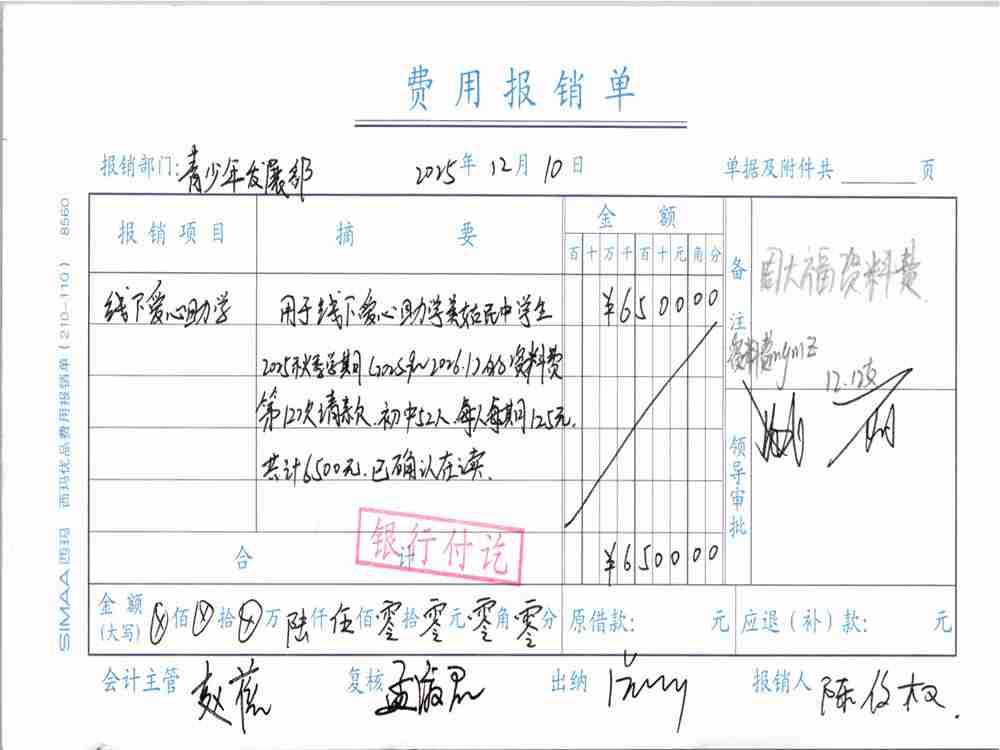 费用报销单
报销部门：青少年发展部 2025年12月10日 单据及附件共 页
报销项目 摘要 金额
百十万千百十元角分
备注
周大福资料费
线下爱心助学
用于线下爱心助学美姑民中学生
¥650000
2025秋季学期(2025.9~2026.1)的资料费
第12次请款.初中52人.每人每期125元.
共计6500元.已确认在读.
资料费
12.12
领导审批
合计
¥650000
银行付讫
金额(大写) 佰 拾 万陆仟伍佰零拾零元零角零分
原借款： 元 应退（补）款： 元
会计主管 复核 出纳 报销人
SIMAA西玛 西玛优品费用报销单（210—110） 8560